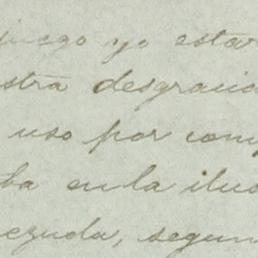 yo estar
stra desgracia
uso por com
ba en la ilus
ezuda, segun